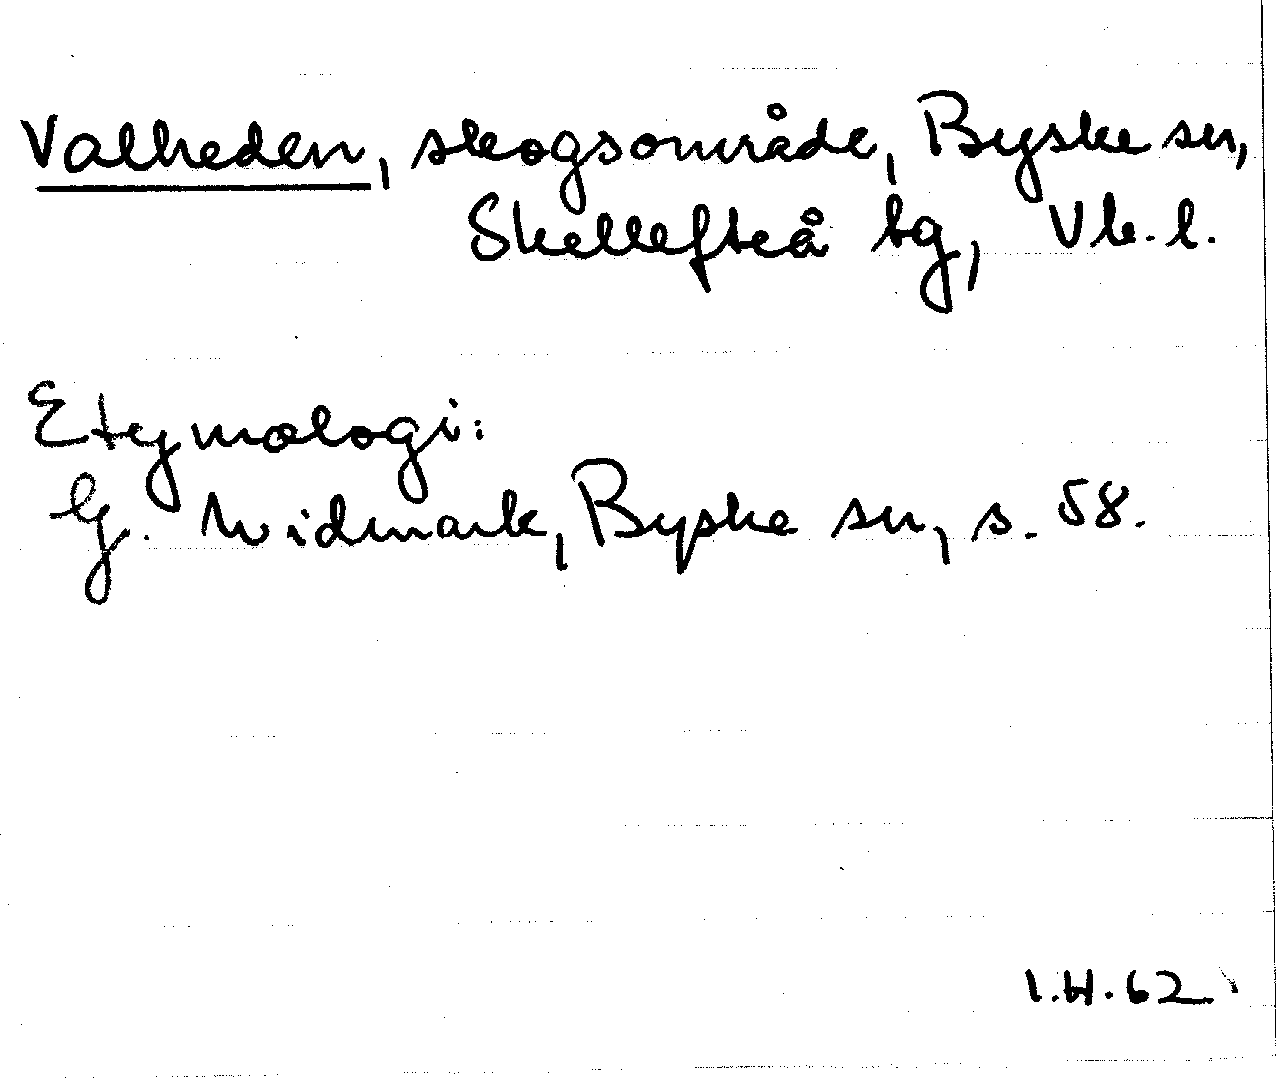 Valheden, skogsområde, Byske sn,
Skellefteå tg, Vb. l.
Etymologi:
G. Widmark, Byske sn, s. 58.
I.H. 62